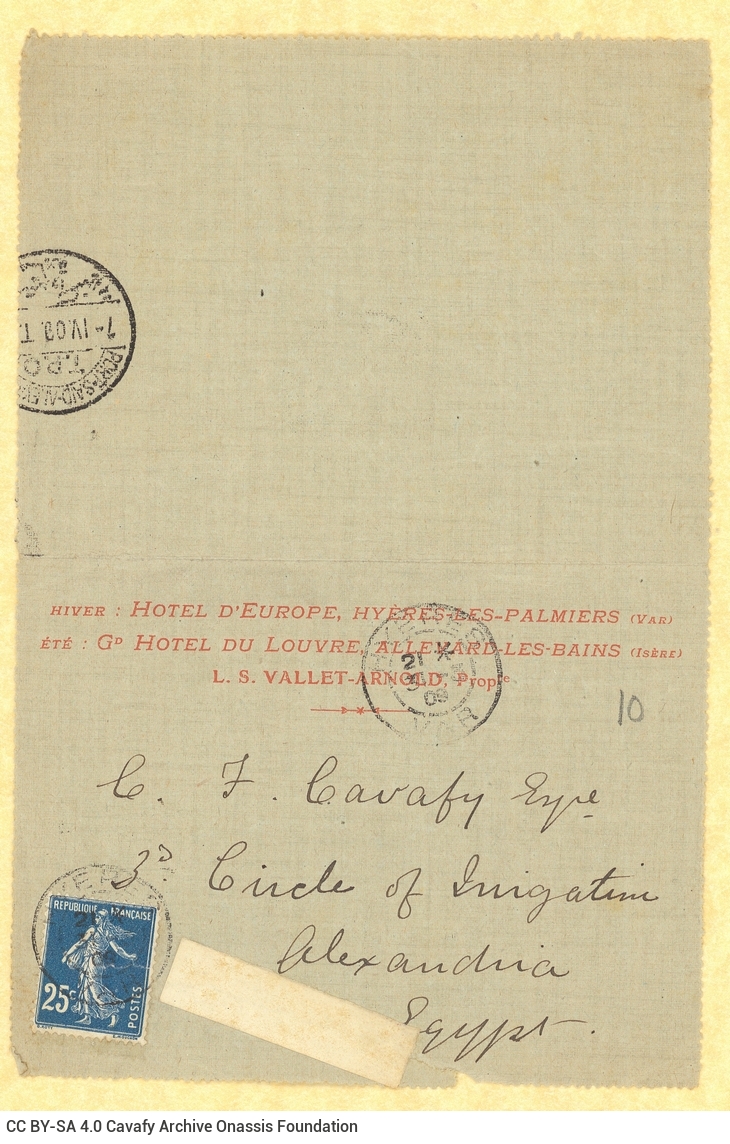 7 IV.09. T
T.P.O
PORT-SAID-ALEX
HIVER : HOTEL D'EUROPE, HYÈRES-LES-PALMIERS (VAR)
ÉTÉ : GD HOTEL DU LOUVRE, ALLEVARD-LES-BAINS (ISÈRE)
L. S. VALLET-ARNOLD, Propre
HYERES
21
09
VAR
10
C. F. Cavafy Esqre
3D Circle of Irrigation
Alexandria
Egypt.
REPUBLIQUE FRANÇAISE
25c
POSTES
CC BY-SA 4.0 Cavafy Archive Onassis Foundation